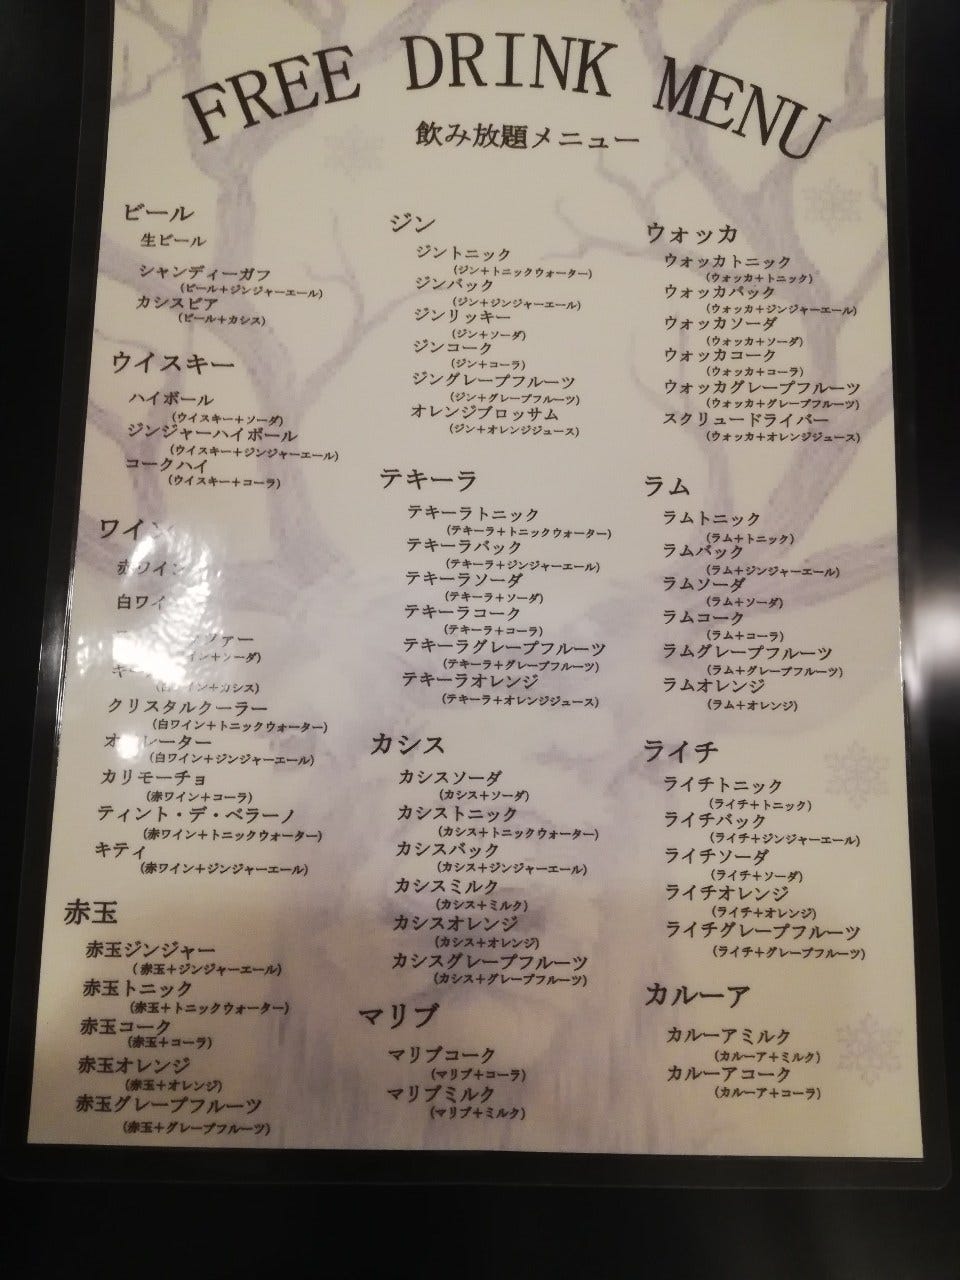 FREE DRINK MENU
飲み放題メニュー
ビール
生ビール
シャンディーガフ
(ビール+ジンジャーエール)
カシスビア
(ビール+カシス)
ウイスキー
ハイボール
(ウイスキー+ソーダ)
ジンジャーハイボール
(ウイスキー+ジンジャーエール)
コークハイ
(ウイスキー+コーラ)
ワイン
赤ワイン
白ワイ
ツァー
イン+ソーダ)
キー
(白ワイン+カシス)
クリスタルクーラー
(白ワイン+トニックウォーター)
オペレーター
(白ワイン+ジンジャーエール)
カリモーチョ
(赤ワイン+コーラ)
ティント・デ・ベラーノ
(赤ワイン+トニックウォーター)
キティ
(赤ワイン+ジンジャーエール)
赤玉
赤玉ジンジャー
(赤玉+ジンジャーエール)
赤玉トニック
(赤玉+トニックウォーター)
赤玉コーク
(赤玉+コーラ)
赤玉オレンジ
(赤玉+オレンジ)
赤玉グレープフルーツ
(赤玉+グレープフルーツ)
ジン
ジントニック
(ジン+トニックウォーター)
ジンバック
(ジン+ジンジャーエール)
ジンリッキー
(ジン+ソーダ)
ジンコーク
(ジン+コーラ)
ジングレープフルーツ
(ジン+グレープフルーツ)
オレンジブロッサム
(ジン+オレンジジュース)
テキーラ
テキーラトニック
(テキーラ+トニックウォーター)
テキーラバック
(テキーラ+ジンジャーエール)
テキーラソーダ
(テキーラ+ソーダ)
テキーラコーク
(テキーラ+コーラ)
テキーラグレープフルーツ
(テキーラ+グレープフルーツ)
テキーラオレンジ
(テキーラ+オレンジジュース)
カシス
カシスソーダ
(カシス+ソーダ)
カシストニック
(カシス+トニックウォーター)
カシスバック
(カシス+ジンジャーエール)
カシスミルク
(カシス+ミルク)
カシスオレンジ
(カシス+オレンジ)
カシスグレープフルーツ
(カシス+グレープフルーツ)
マリブ
マリブコーク
(マリブ+コーラ)
マリブミルク
(マリブ+ミルク)
ウォッカ
ウォッカトニック
(ウォッカ+トニック)
ウォッカバック
(ウォッカ+ジンジャーエール)
ウォッカソーダ
(ウォッカ+ソーダ)
ウォッカコーク
(ウォッカ+コーラ)
ウォッカグレープフルーツ
(ウォッカ+グレープフルーツ)
スクリュードライバー
(ウォッカ+オレンジジュース)
ラム
ラムトニック
(ラム+トニック)
ラムバック
(ラム+ジンジャーエール)
ラムソーダ
(ラム+ソーダ)
ラムコーク
(ラム+コーラ)
ラムグレープフルーツ
(ラム+グレープフルーツ)
ラムオレンジ
(ラム+オレンジ)
ライチ
ライチトニック
(ライチ+トニック)
ライチバック
(ライチ+ジンジャーエール)
ライチソーダ
(ライチ+ソーダ)
ライチオレンジ
(ライチ+オレンジ)
ライチグレープフルーツ
(ライチ+グレープフルーツ)
カルーア
カルーアミルク
(カルーア+ミルク)
カルーアコーク
(カルーア+コーラ)